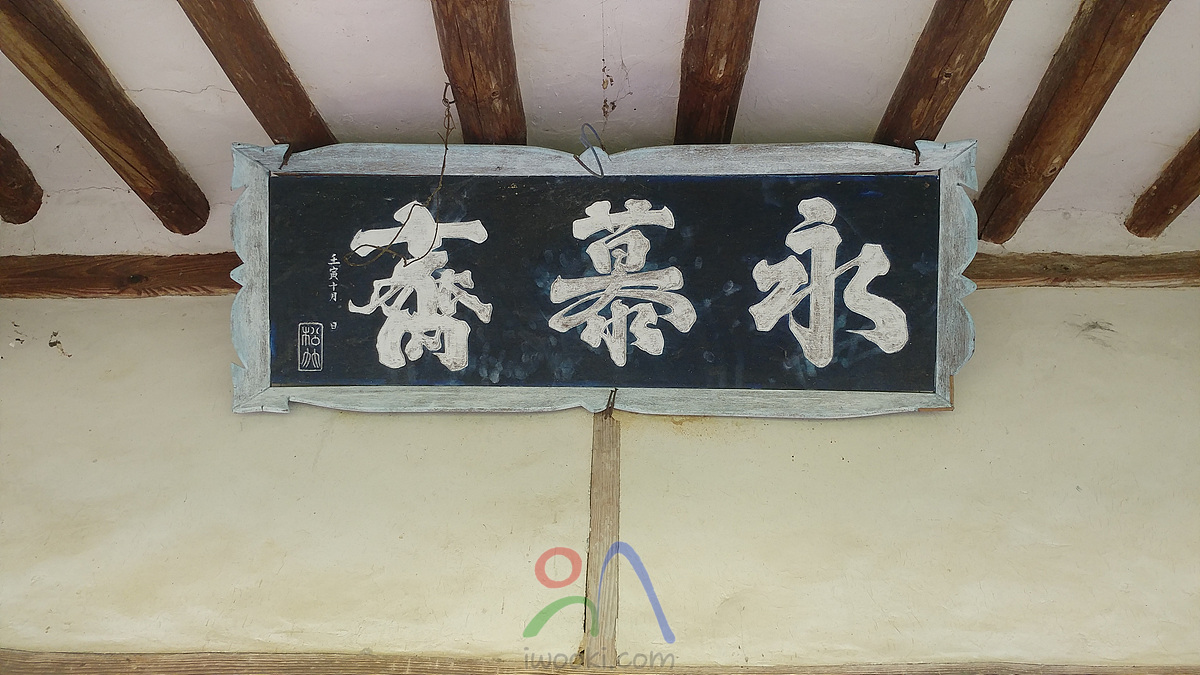 永慕齋
壬寅十月 日
松竹
iwooki.com